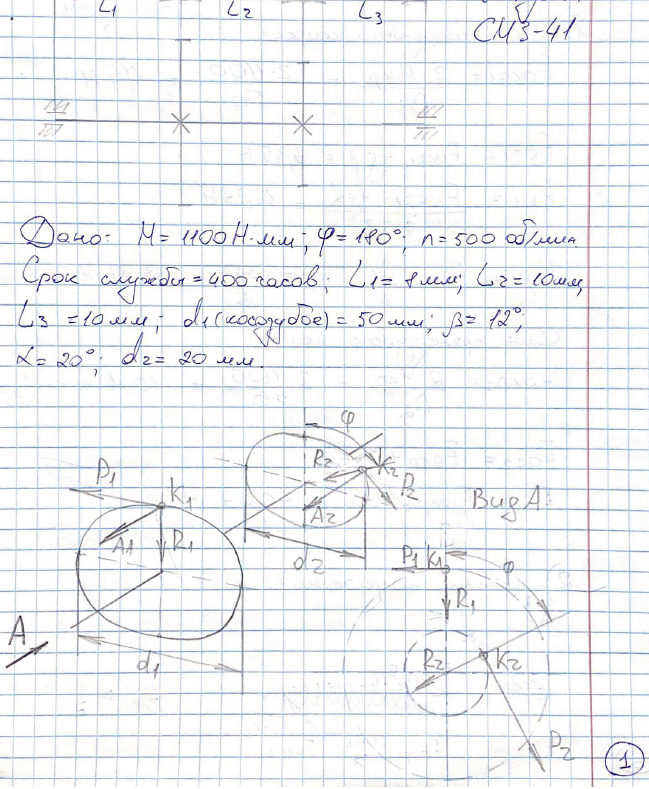 L1 L2 L3
СМ3-41
Дано: M = 1100 Н·мм; φ = 180°; n = 500 об/мин
Срок службы = 400 часов; L1 = 8 мм; L2 = 10 мм,
L3 = 10 мм; d1 (косозубое) = 50 мм; β = 12°;
α = 20°; d2 = 20 мм.
φ
P1 K1 R2 K2
P2
A1 R1 A2
Вид А
d2
P1 K1 φ
R1
A
d1 R2 K2
P2
1